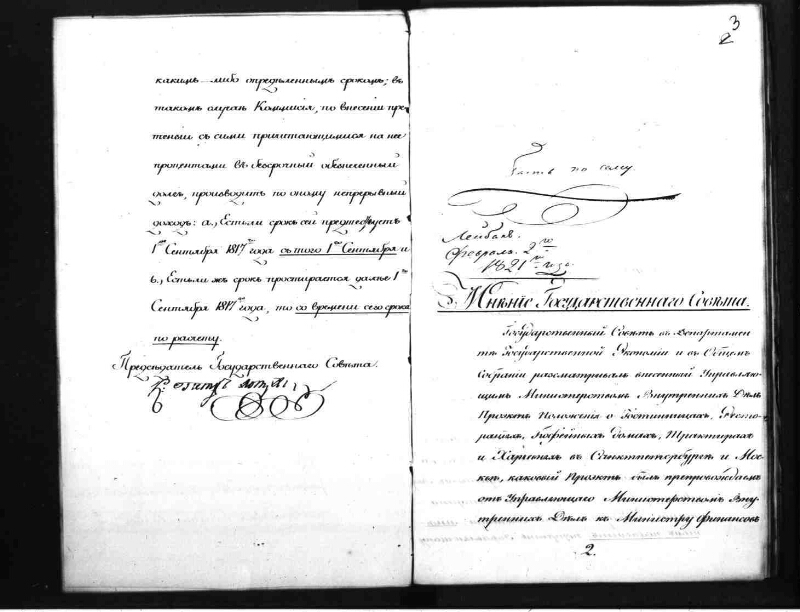 какимъ-либо определеннымъ срокомъ; въ
такомъ случаѣ Коммисія, по внесеніи пре-
тензіи съ сими причитающимися на нее
процентами въ безсрочный облеченный
долгъ, производитъ по оному непрерывный
доходъ: а., Естьли срокъ сей предшествуетъ
1му Сентября 1817го года съ того 1го Сентября и
б., Естьли же срокъ простирается далѣе 1го
Сентября 1817го года, то со времени сего срока
по разчету.
Председатель Государственнаго Совѣта.
3
2
Быть по сему.
Лейбахъ.
Февраль 2го
1821го года
Мнѣніе Государственнаго Совѣта.
Государственный Совѣтъ въ Департамен-
тѣ Государственной Экономіи и въ Общемъ
Собраніи разсматривалъ внесенный Управляю-
щимъ Министерствомъ Внутреннихъ Дѣлъ
Проэктъ Положенія о Гостинницахъ, Ресто-
раціяхъ, Кофейныхъ домахъ, Трактирахъ
и Харчевняхъ въ Санктпетербургѣ и Мос-
квѣ, каковый Проэктъ былъ препровождаемъ
отъ Управляющаго Министерствомъ Вну-
треннихъ Дѣлъ къ Министру Финансовъ
2.